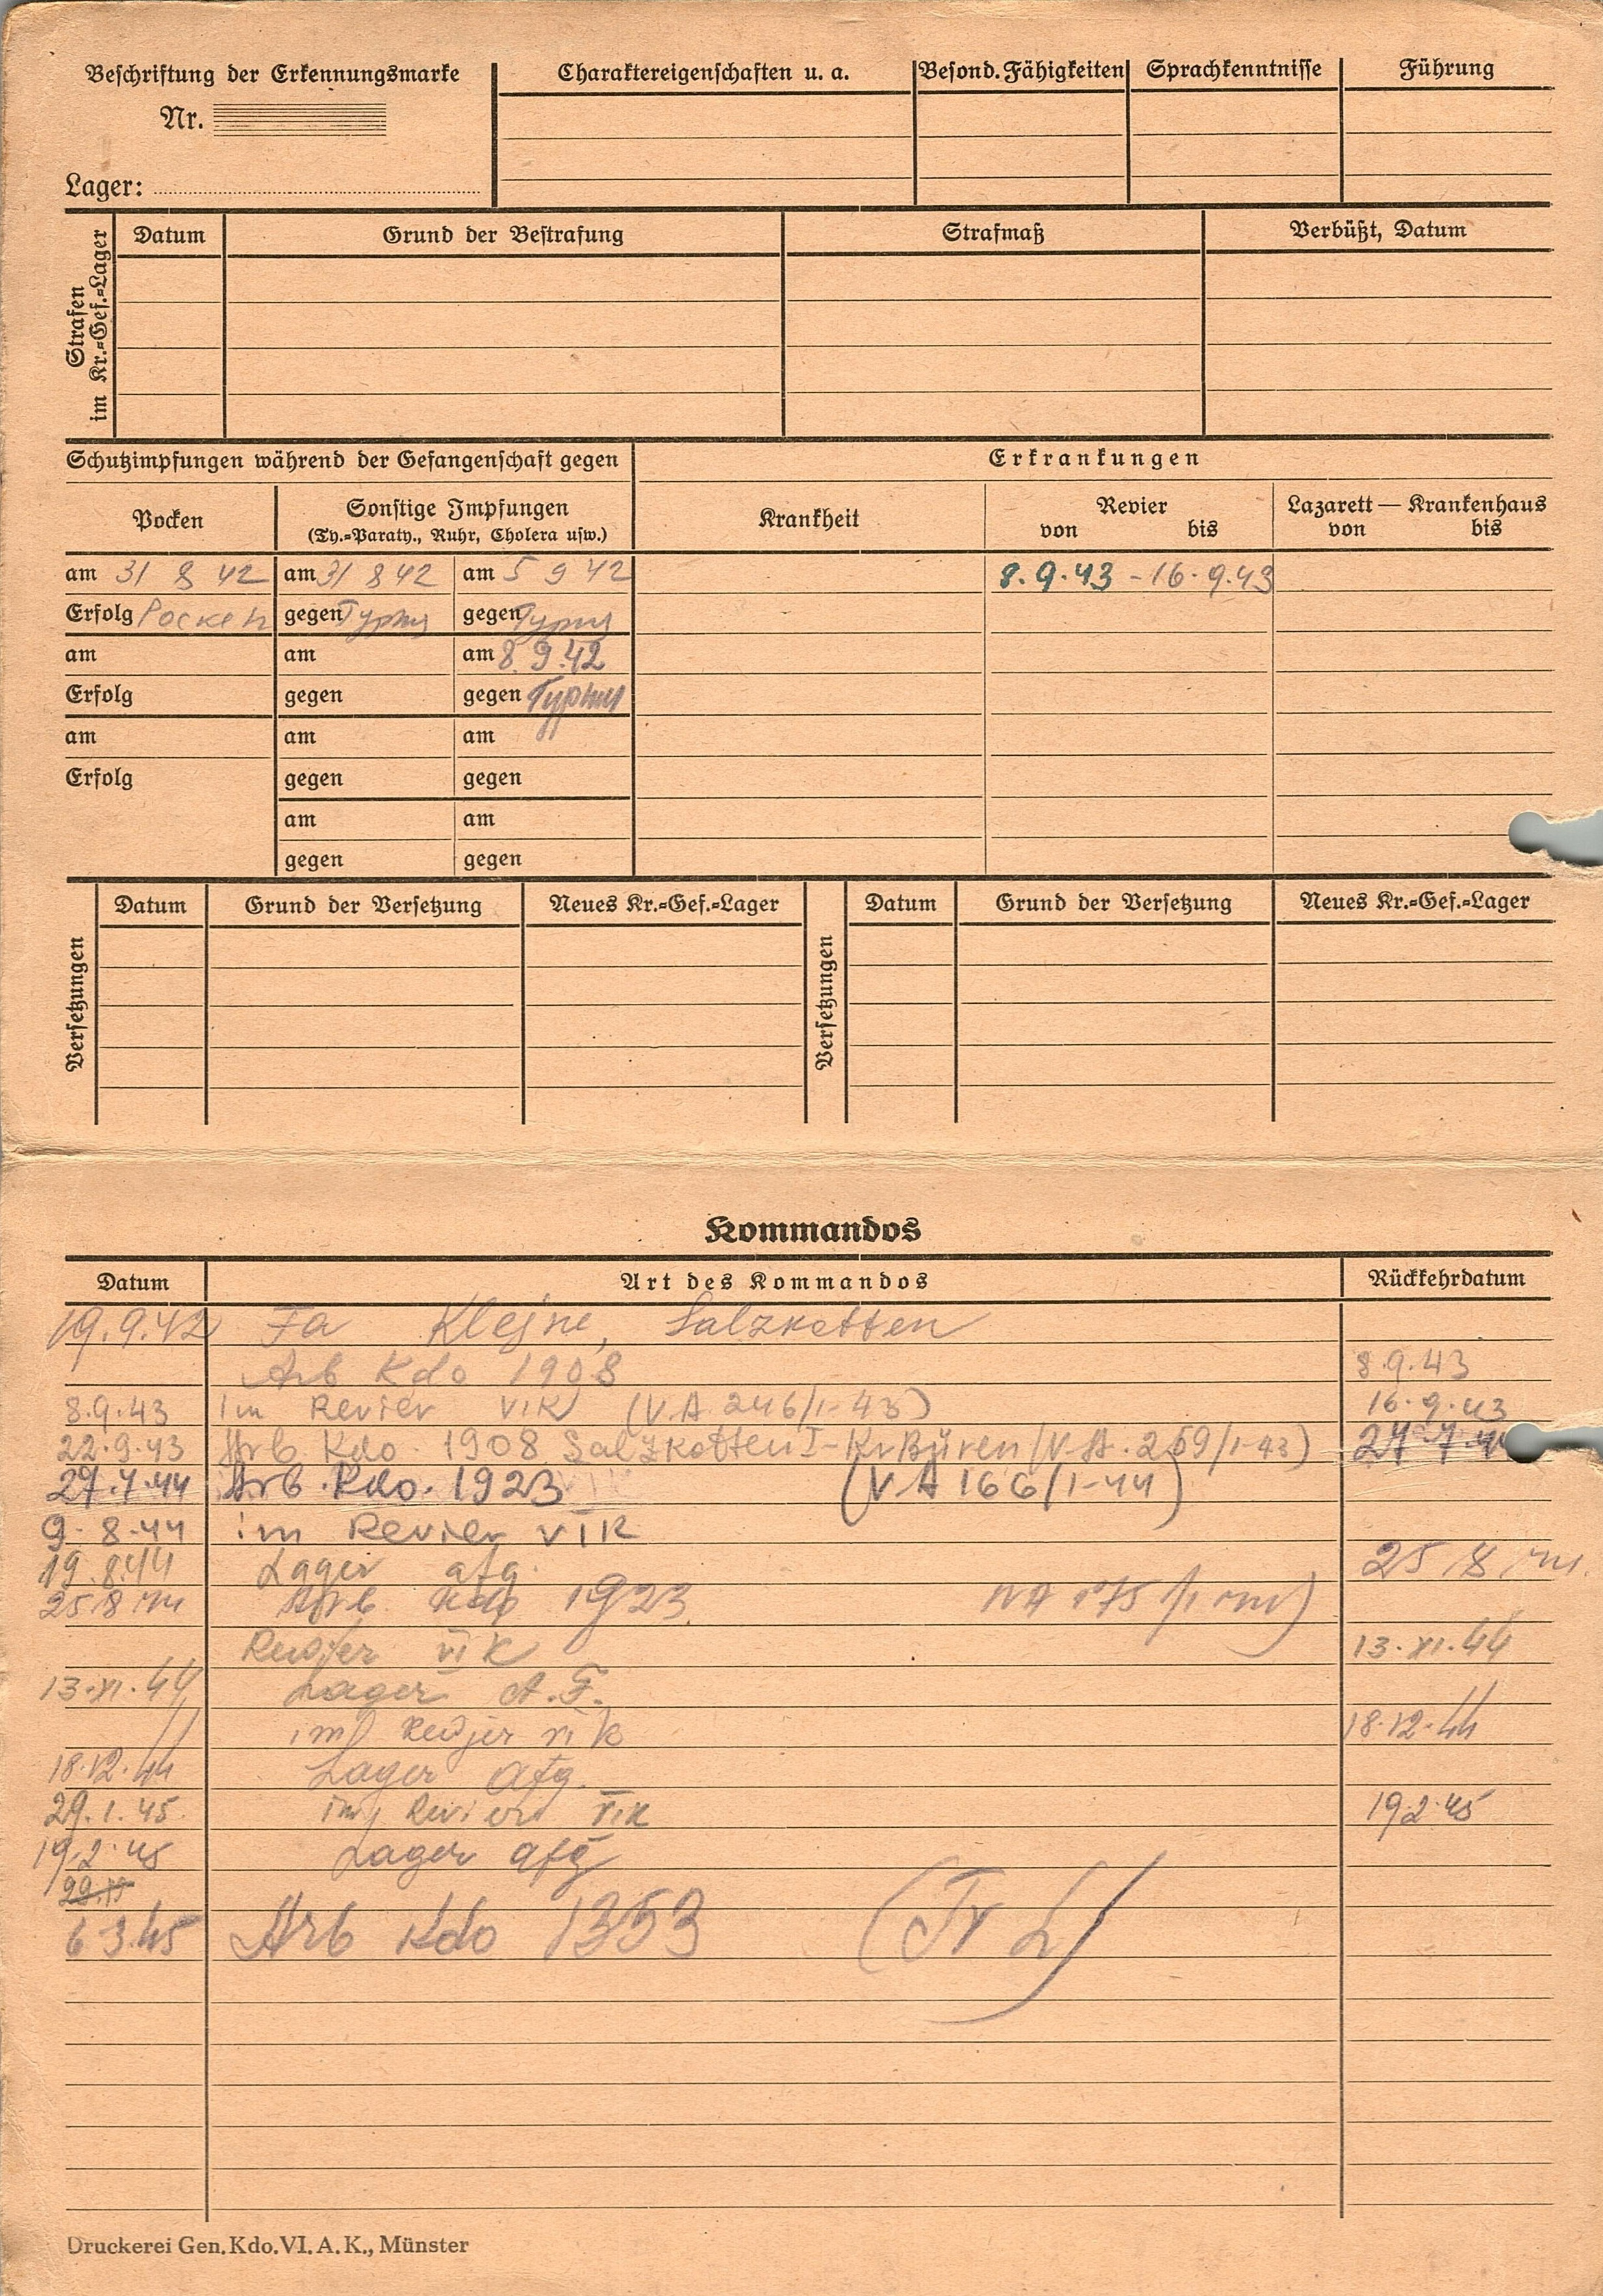 Beschriftung der Erkennungsmarke
Nr.
Lager:
Charaktereigenschaften u. a.
Besond. Fähigkeiten
Sprachkenntnisse
Führung
Strafen im Kr.=Gef.=Lager
Datum
Grund der Bestrafung
Strafmaß
Verbüßt, Datum
Schutzimpfungen während der Gefangenschaft gegen
Erkrankungen
Pocken
Sonstige Impfungen
(Ty.=Paraty., Ruhr, Cholera usw.)
Krankheit
Revier
von bis
Lazarett — Krankenhaus
von bis
am 31 8 42 am 31 8 42 am 5 9 42
8.9.43 - 16.9.43
Erfolg Pocken gegen Typhus gegen Typhus
am am am 8.9.42
Erfolg gegen gegen Typhus
am am am
Erfolg gegen gegen
am am
gegen gegen
Versetzungen
Datum
Grund der Versetzung
Neues Kr.=Gef.=Lager
Versetzungen
Datum
Grund der Versetzung
Neues Kr.=Gef.=Lager
Kommandos
Datum Art des Kommandos Rückkehrdatum
19.9.42 Fa Klejne, Salzkotten
Arb Kdo 1908 8.9.43
8.9.43 im Revier VIK (V.A 246/I-43) 16.9.43
22.9.43 Arb. Kdo. 1908 Salzkotten I-Kr Büren (V.A. 259/I-43) 27.7.44
27.7.44 Arb. Kdo. 1923 (V.A 166/I-44)
9.8.44 im Revier VIK
19.8.44 Lager afg. 25/8/44.
25/8/44 Arb Kdo 1923 VA 175/I 44)
Revjer VI K 13.XI.44
13.XI.44 Lager A.F.
im Revjer VI K 18.12.44
18.12.44 Lager afg.
29.1.45. im Revier VIK 19.2.45
19.2.45 Lager afg
6 3.45 Arb Kdo 1353 (Tr L)
Druckerei Gen. Kdo. VI. A. K., Münster